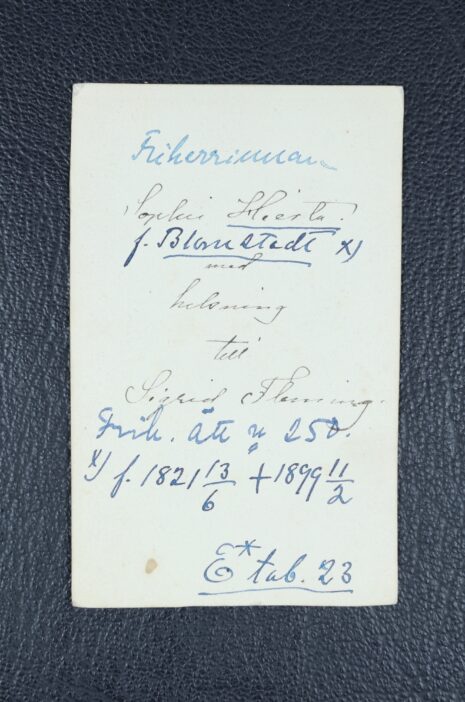 Friherrinnan
Sophie Hierta.
f. Blomstedt x)
med
helsning
till
Sigrid Fleming.
Frih. ätt n 250.
x) f. 1821 13/6 + 1899 11/2
E* tab. 23